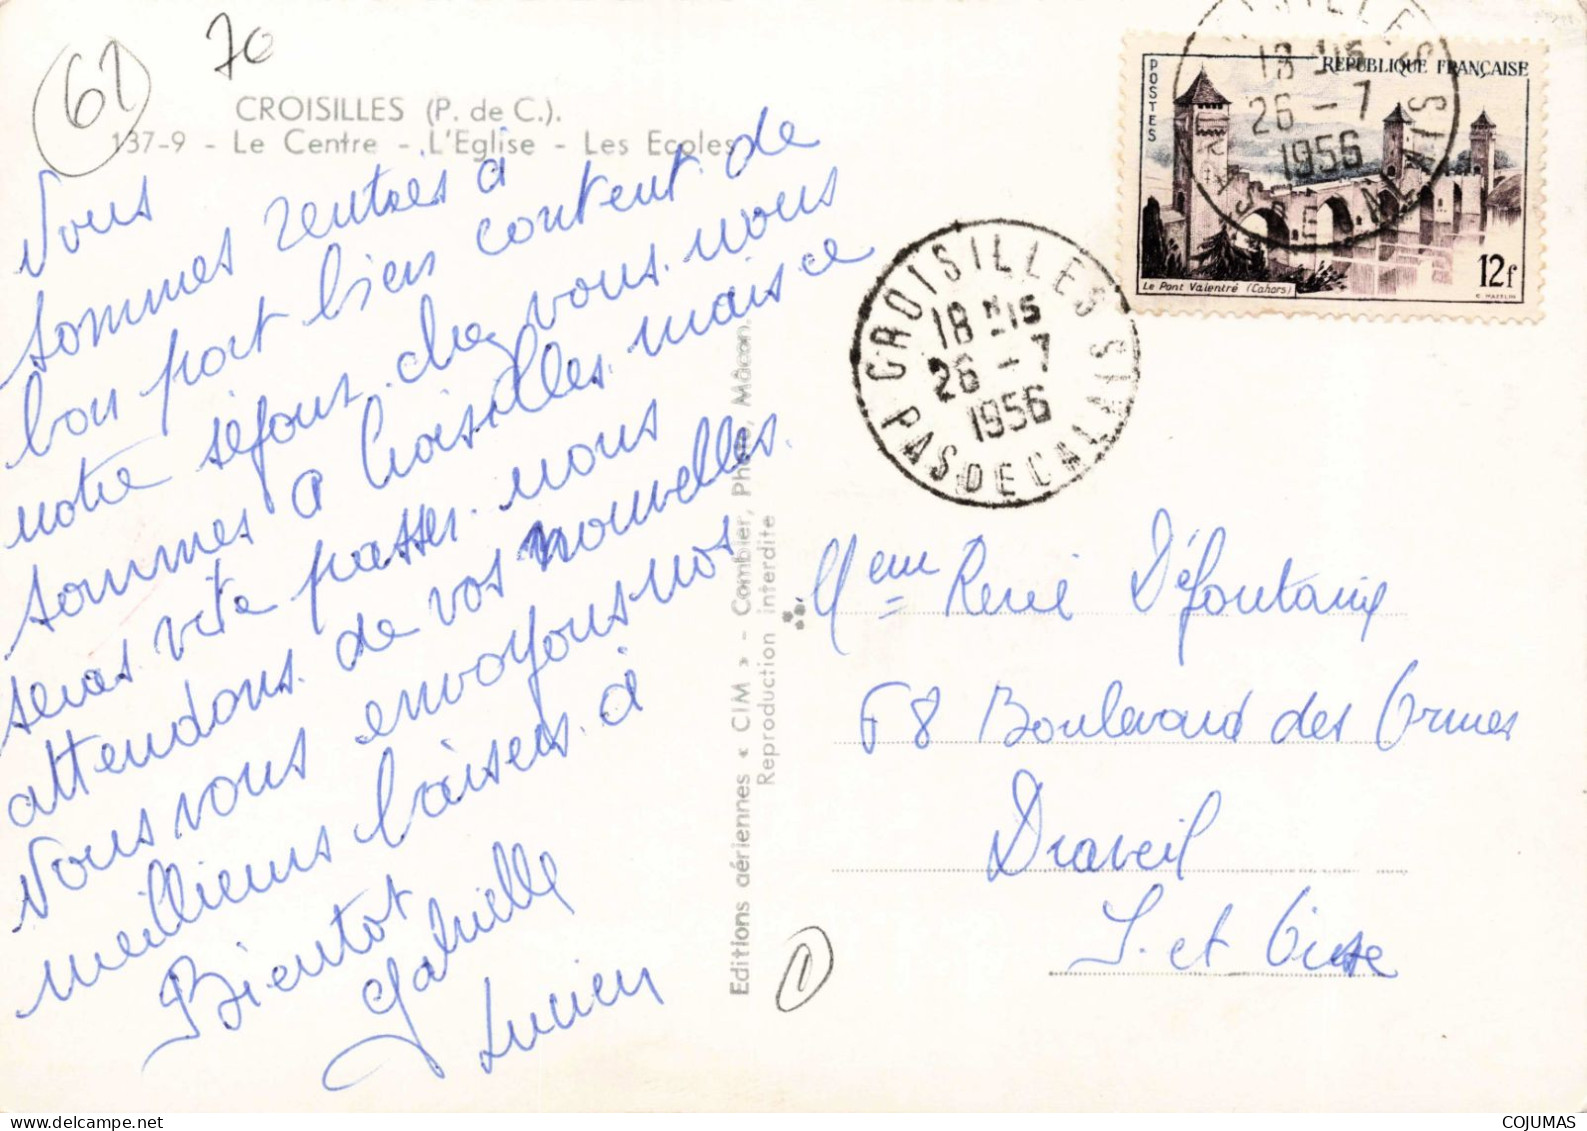 61
70
CROISILLES (P. de C.).
137-9 - Le Centre - L'Eglise - Les Ecoles
Nous
sommes rentrés a
bon port bien content de
notre séjour chez vous. nous
sommes a Croisilles mais ce
seras vite passer. nous
attendons de vos nouvelles.
Nous vous envoyons nos
meilliеurs baisers. a
Bientot
Gabrielle
Lucien
Editions aériennes « CIM » - Combier, Photo, Mâcon.
Reproduction interdite
1
POSTES
REPUBLIQUE FRANÇAISE
Le Pont Valentré (Cahors)
12f
CROISILLES
18 H15
26 - 7
1956
PAS DE CALAIS
CROISILLES
18 H15
26 - 7
1956
PAS DE CALAIS
Mme René Défontaine
68 Boulevard des Ormes
Draveil
S. et Oise
COJUMAS